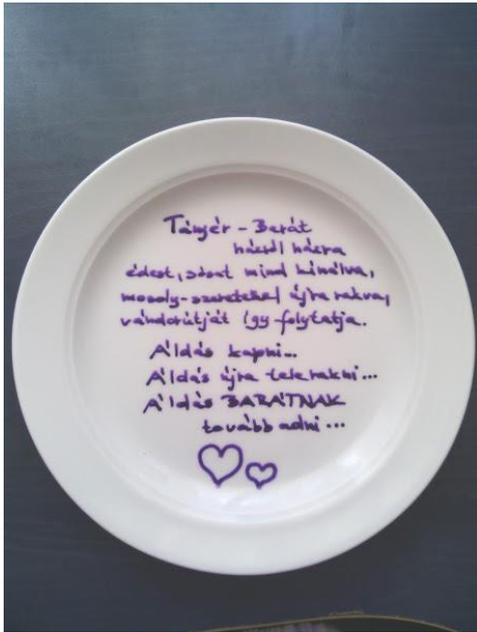 Tányér - Barát
házról házra
édest, sósat mind kínálva,
mosoly-szeretettel újra rakva,
vándorútját így folytatja.
Áldás kapni...
Áldás újra telerakni...
Áldás BARÁTNAK
tovább adni...